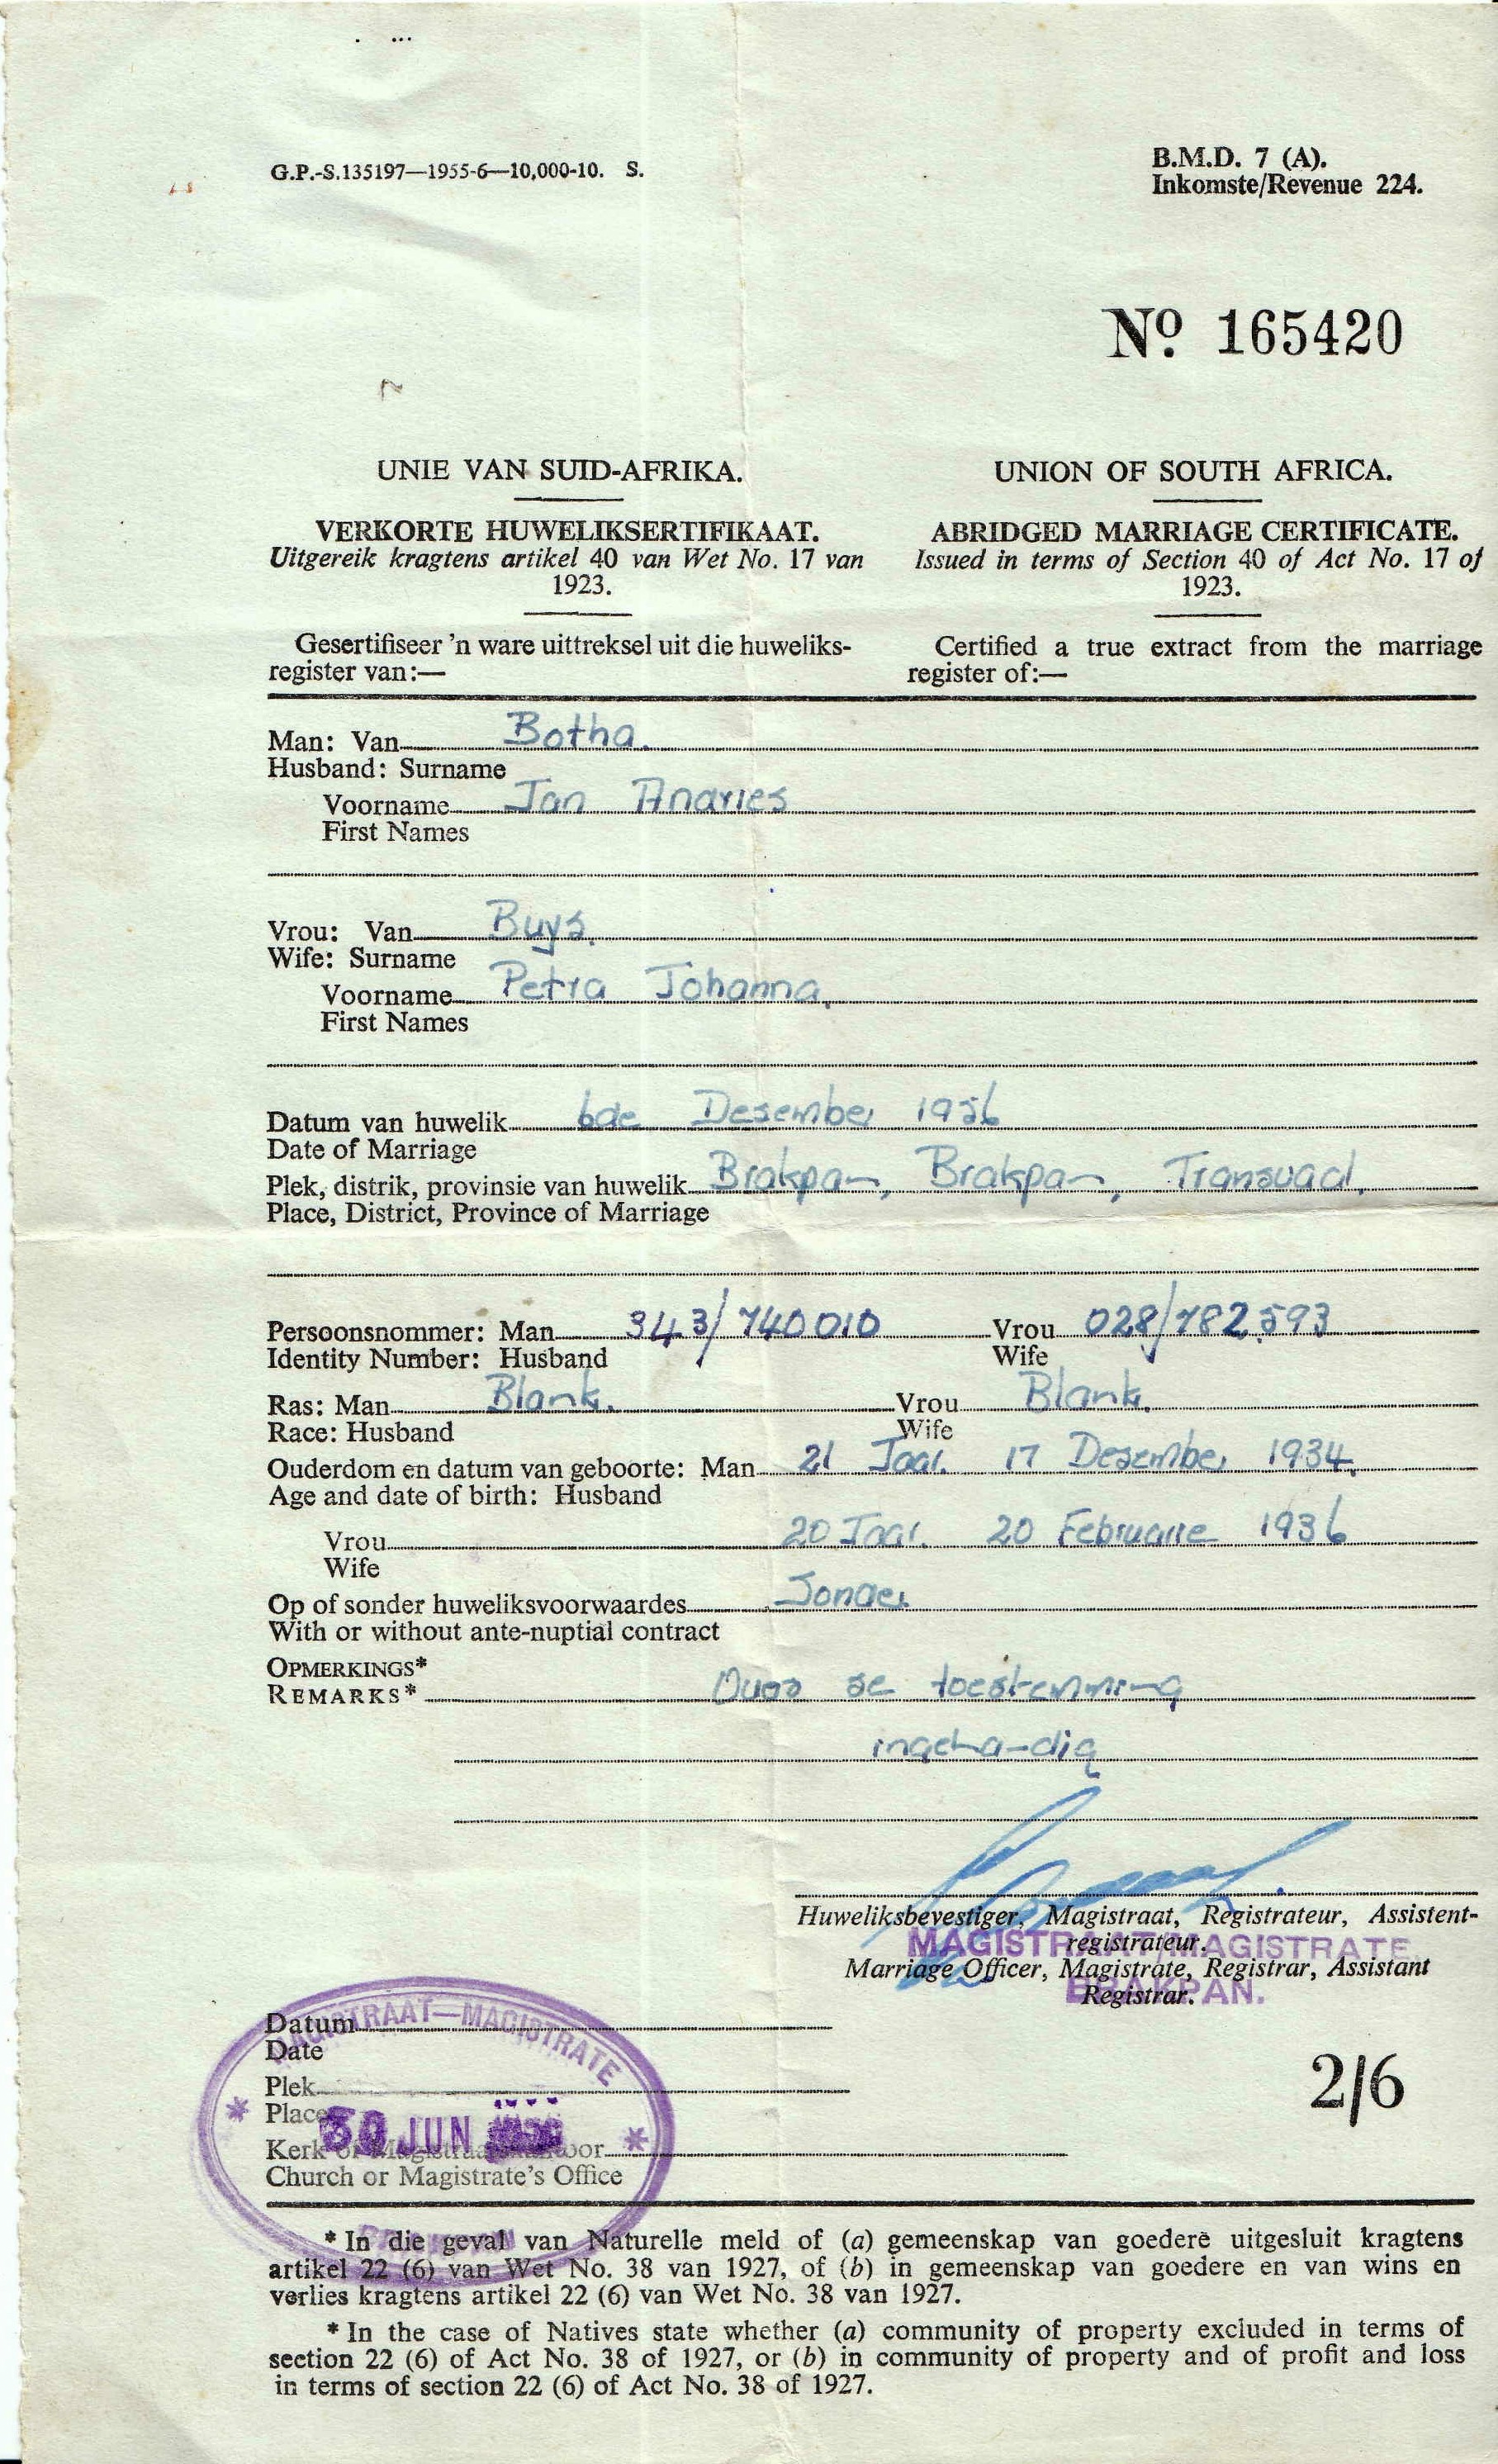 G.P.-S.135197—1955-6—10,000-10. S.
B.M.D. 7 (A).
Inkomste/Revenue 224.
Nº 165420
UNIE VAN SUID-AFRIKA.
VERKORTE HUWELIKSERTIFIKAAT.
Uitgereik kragtens artikel 40 van Wet No. 17 van
1923.
Gesertifiseer 'n ware uittreksel uit die huweliks-
register van:—
UNION OF SOUTH AFRICA.
ABRIDGED MARRIAGE CERTIFICATE.
Issued in terms of Section 40 of Act No. 17 of
1923.
Certified a true extract from the marriage
register of:—
Man: Van Botha.
Husband: Surname
Voorname Jan Andries
First Names
Vrou: Van Buys.
Wife: Surname
Voorname Petra Johanna.
First Names
Datum van huwelik 6de Desember 1956
Date of Marriage
Plek, distrik, provinsie van huwelik Brakpan, Brakpan, Transvaal.
Place, District, Province of Marriage
Persoonsnommer: Man 343/740010 Vrou 028/782593
Identity Number: Husband Wife
Ras: Man Blank. Vrou Blank.
Race: Husband Wife
Ouderdom en datum van geboorte: Man 21 Jaar. 17 Desember 1934.
Age and date of birth: Husband
Vrou 20 Jaar. 20 Februarie 1936
Wife
Op of sonder huweliksvoorwaardes Sonder
With or without ante-nuptial contract
OPMERKINGS*
REMARKS* Ouers se toestemming
ingehandig
Huweliksbevestiger, Magistraat, Registrateur, Assistent-
registrateur.
MAGISTRAAT/MAGISTRATE
Marriage Officer, Magistrate, Registrar, Assistant
Registrar.
BRAKPAN.
MAGISTRAAT—MAGISTRATE
Datum
Date
Plek
Place
30 JUN
Kerk of Magistraatskantoor
Church or Magistrate's Office
2/6
* In die geval van Naturelle meld of (a) gemeenskap van goedere uitgesluit kragtens
artikel 22 (6) van Wet No. 38 van 1927, of (b) in gemeenskap van goedere en van wins en
verlies kragtens artikel 22 (6) van Wet No. 38 van 1927.
* In the case of Natives state whether (a) community of property excluded in terms of
section 22 (6) of Act No. 38 of 1927, or (b) in community of property and of profit and loss
in terms of section 22 (6) of Act No. 38 of 1927.